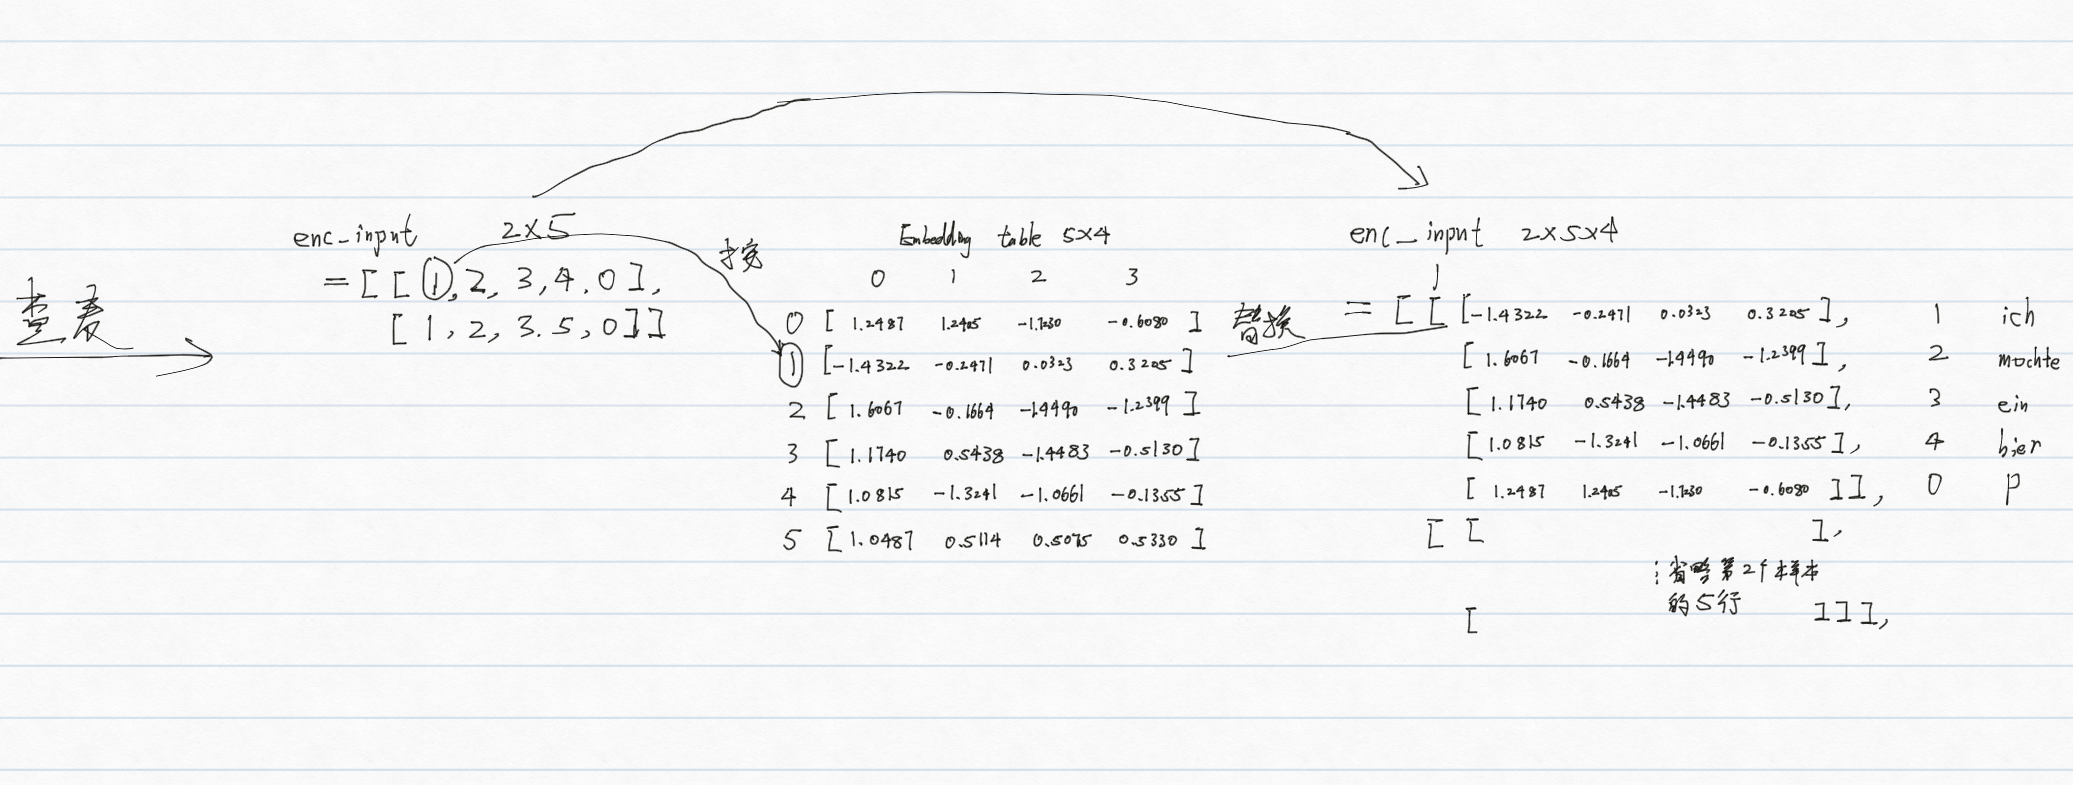 查表
enc_input 2×5
=[[1,2,3,4,0],
[1,2,3.5,0]]
Embedding table 5×4
0 1 2 3
0 [ 1.2487 1.2405 -1.7230 -0.6080 ]
1 [-1.4322 -0.2471 0.0323 0.3205 ]
2 [ 1.6067 -0.1664 -1.4490 -1.2399 ]
3 [ 1.1740 0.5438 -1.4483 -0.5130 ]
4 [ 1.0815 -1.3241 -1.0661 -0.1355 ]
5 [ 1.0487 0.5114 0.5075 0.5330 ]
替换
enc_input 2×5×4
= [ [ [-1.4322 -0.2471 0.0323 0.3205 ], 1 ich
[ 1.6067 -0.1664 -1.4490 -1.2399 ], 2 mochte
[ 1.1740 0.5438 -1.4483 -0.5130 ], 3 ein
[ 1.0815 -1.3241 -1.0661 -0.1355 ], 4 bier
[ 1.2487 1.2405 -1.7230 -0.6080 ] ], 0 P
[ [ ],
⋮省略第2个样本
的5行
[ ] ] ],